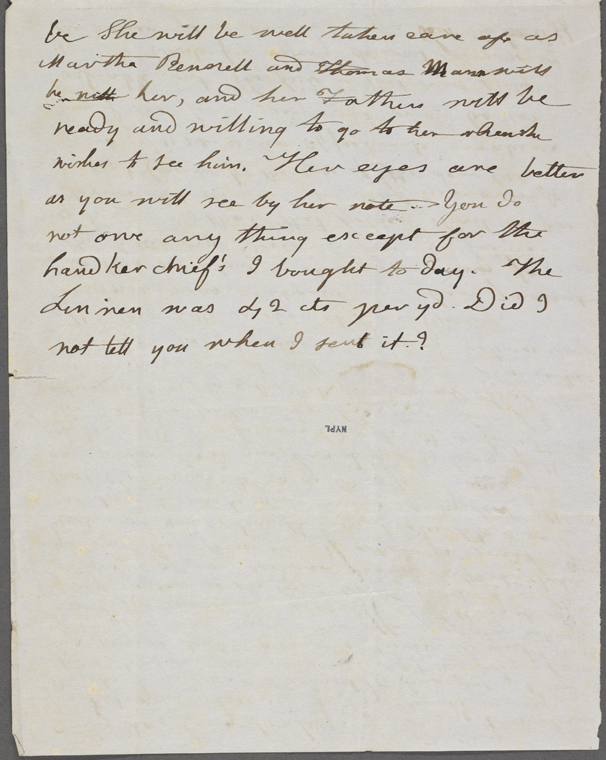 be She will be well taken care of as
Martha Penorell and Thomas Mann will
be with her, and her Father will be
ready and willing to go to her when she
wishes to see him. Her eyes are better
as you will see by her note. You do
not owe any thing except for the
handkerchief's I bought to day. The
Linnen was 42 cts per yd. Did I
not tell you when I sent it?
NYPL